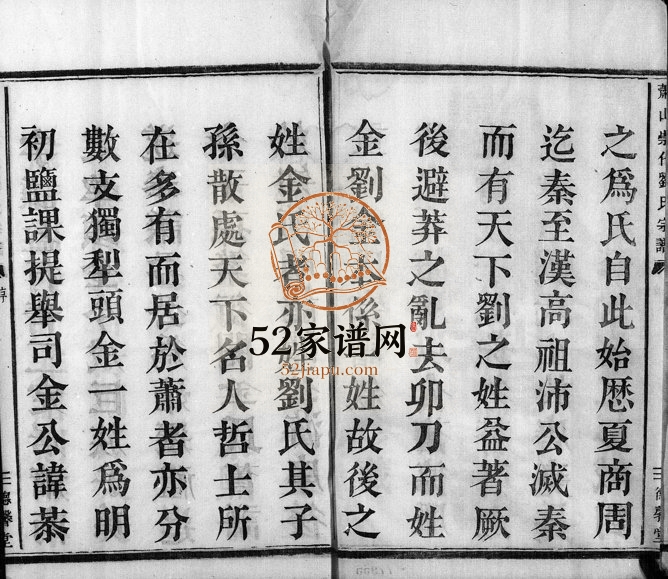 之爲氏自此始歴夏商周
迄秦至漢高祖沛公滅秦
而有天下劉之姓益著厥
後避莽之亂去卯刀而姓
金劉金本後姓故後之
姓金氏者亦劉氏其子
孫散處天下名人哲士所
在多有而居於蕭者亦分
數支獨犁頭金一姓爲明
初鹽課提舉司金公諱茶
52家谱网
52jiapu.com